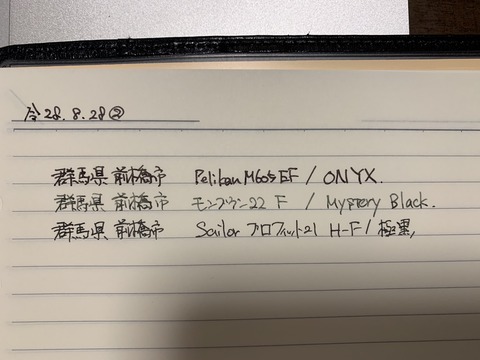 28.8.28②
群馬県 前橋市 Pelikan M605 EF / ONYX.
群馬県 前橋市 モンブラン22 F / Mystery Black.
群馬県 前橋市 Sailor プロフィット21 H-F / 極黒,